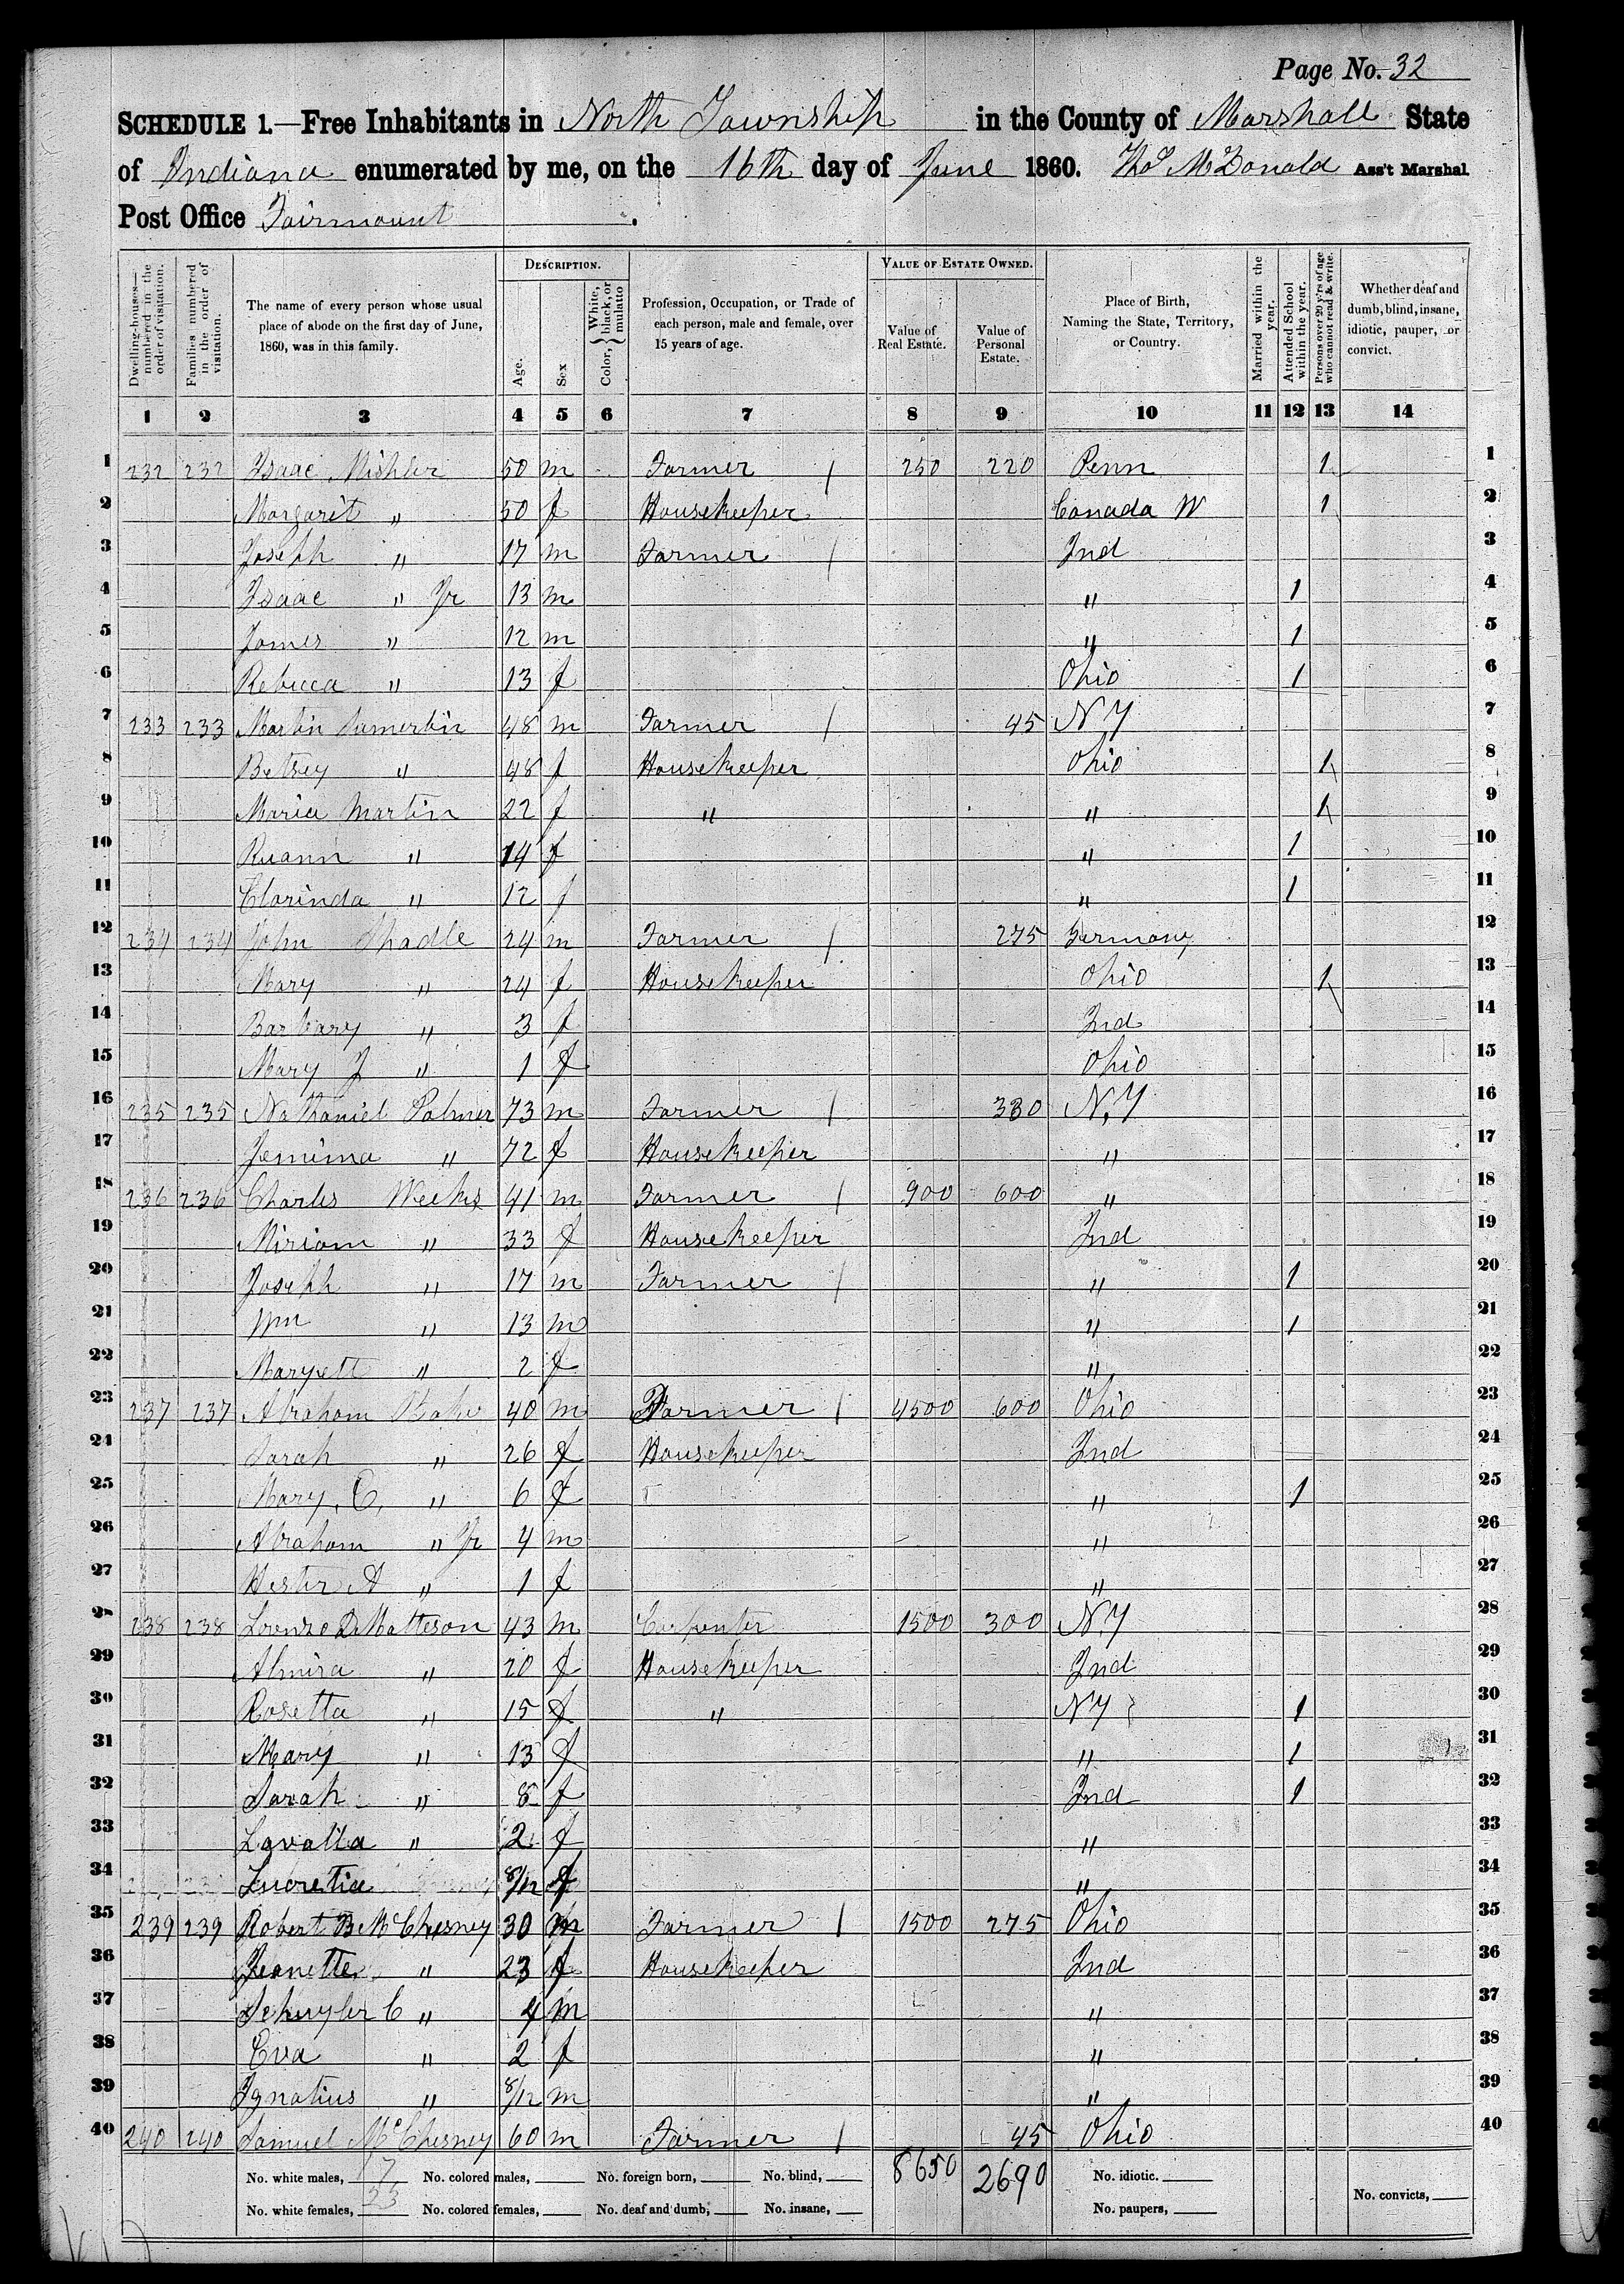 Page No. 32
SCHEDULE 1.—Free Inhabitants in North Township in the County of Marshall State
of Indiana enumerated by me, on the 16th day of June 1860. Thos McDonald Ass't Marshal
Post Office Fairmount.
Dwelling-houses—numbered in the order of visitation.
Families numbered in the order of visitation.
The name of every person whose usual place of abode on the first day of June, 1860, was in this family.
DESCRIPTION.
Age.
Sex
Color, { White, black, or mulatto
Profession, Occupation, or Trade of each person, male and female, over 15 years of age.
VALUE OF ESTATE OWNED.
Value of Real Estate.
Value of Personal Estate.
Place of Birth, Naming the State, Territory, or Country.
Married within the year.
Attended School within the year.
Persons over 20 y'rs of age who cannot read & write.
Whether deaf and dumb, blind, insane, idiotic, pauper, or convict.
1 2 3 4 5 6 7 8 9 10 11 12 13 14
1 232 232 Isaac Mishler 50 m Farmer / 250 220 Penn 1 1
2 Margarit " 50 f Housekeeper Canada W 1 2
3 Joseph " 17 m Farmer / Ind 3
4 Isaac " Jr 13 m " 1 4
5 James " 12 m " 1 5
6 Rebecca " 13 f Ohio 1 6
7 233 233 Martin 48 m Farmer / 45 N Y 7
8 Betsey " 48 f Housekeeper Ohio 1 8
9 Maria Martin 22 f " " 1 9
10 Ruann " 14 f " 1 10
11 Clarinda " 12 f " 1 11
12 234 234 John Shadle 24 m Farmer / 275 Germany 12
13 Mary " 24 f Housekeeper Ohio 1 13
14 Barbary " 3 f Ind 14
15 Mary J " 1 f Ohio 15
16 235 235 Nathaniel Palmer 73 m Farmer / 330 N.Y 16
17 Jemima " 72 f Housekeeper " 17
18 236 236 Charles Weeks 41 m Farmer / 900 600 " 18
19 Miriam " 33 f Housekeeper Ind 19
20 Joseph " 17 m Farmer / " 1 20
21 Wm " 13 m " 1 21
22 Maryett " 2 f " 22
23 237 237 Abraham Baker 40 m Farmer / 4500 600 Ohio 23
24 Sarah " 26 f Housekeeper Ind 24
25 Mary, C, " 6 f " 1 25
26 Abraham " Jr 4 m " 26
27 Hester A " 1 f " 27
28 238 238 Lorenzo D Matteson 43 m Carpenter 1500 300 N.Y 28
29 Almira " 20 f Housekeeper Ind 29
30 Rosetta " 15 f " N Y 1 30
31 Mary " 13 f " 1 31
32 Sarah " 8 f Ind 1 32
33 Lavatta " 2 f " 33
34 Lucretia 8/12 f " 34
35 239 239 Robert B McChesney 30 m Farmer / 1500 275 Ohio 35
36 Jeanette " 23 f Housekeeper Ind 36
37 Schuyler C " 4 m " 37
38 Eva " 2 f " 38
39 Ignatius " 8/12 m " 39
40 240 240 Samuel McChesney 60 m Farmer / 45 Ohio 40
No. white males, 17 No. colored males, No. foreign born, No. blind, 8650 2690 No. idiotic.
No. white females, 23 No. colored females, No. deaf and dumb, No. insane, No. paupers, No. convicts,